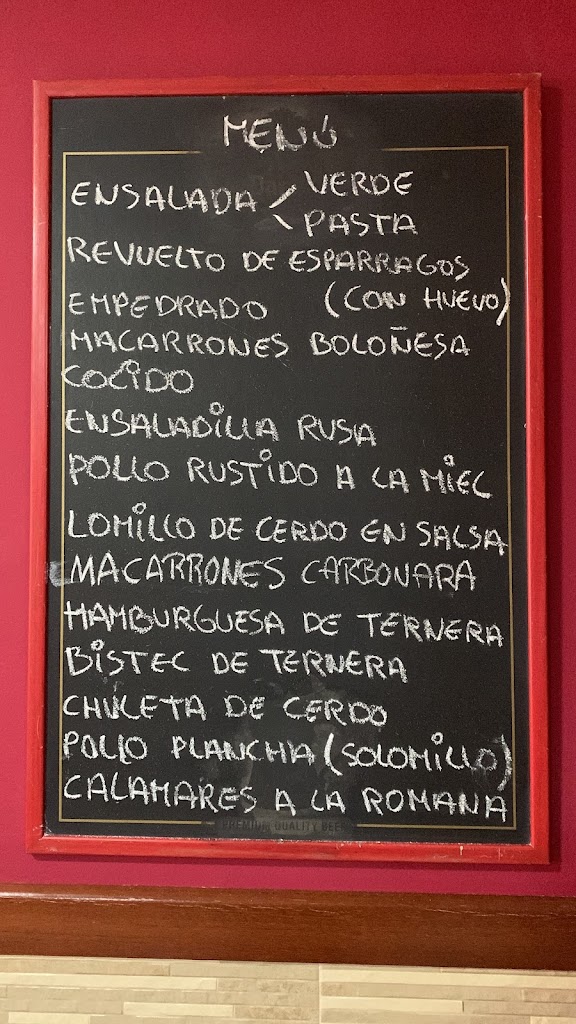 MENÚ
ENSALADA < VERDE
PASTA
REVUELTO DE ESPARRAGOS
EMPEDRADO (CON HUEVO)
MACARRONES BOLOÑESA
COCIDO
ENSALADILLA RUSA
POLLO RUSTIDO A LA MIEL
LOMILLO DE CERDO EN SALSA
MACARRONES CARBONARA
HAMBURGUESA DE TERNERA
BISTEC DE TERNERA
CHULETA DE CERDO
POLLO PLANCHA (SOLOMILLO)
CALAMARES A LA ROMANA
PREMIUM QUALITY BEER